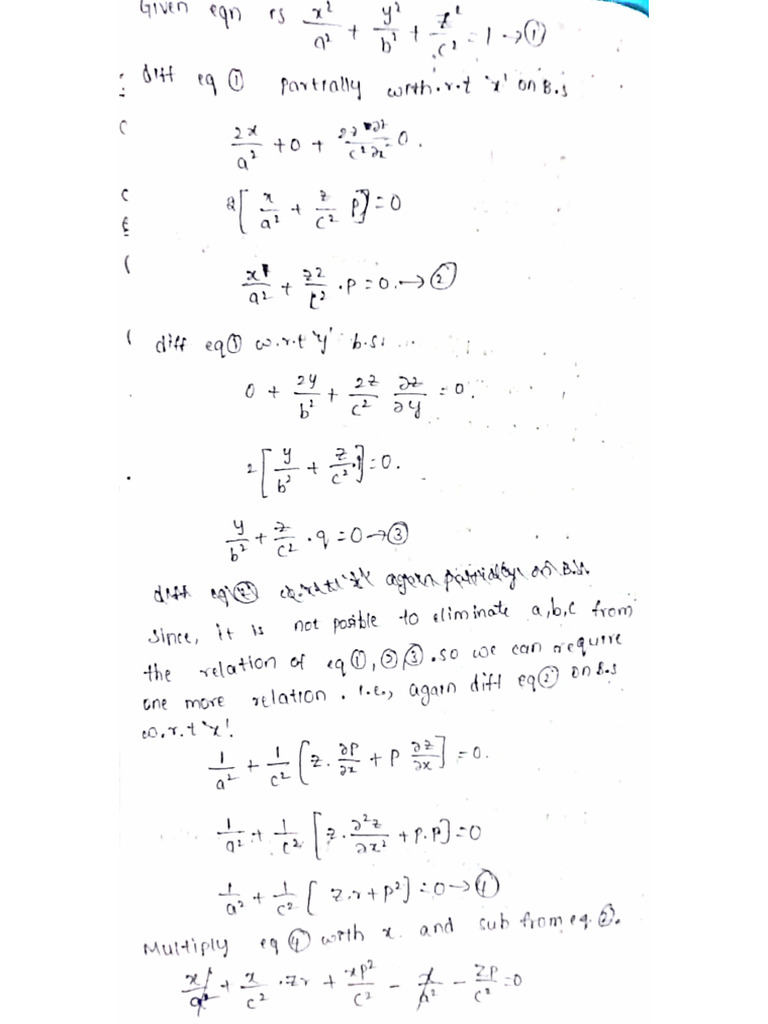 Given eqn is x²/a² + y²/b² + z²/c² = 1 → ①
diff eq ① partially with.r.t 'x' on B.s
2x/a² + 0 + 2z ∂z/c² ∂x = 0.
2[x/a² + z/c² p] = 0
x/a² + z/c² . p = 0. → ②
diff eq ① w.r.t 'y' b.s.
0 + 2y/b² + 2z/c² ∂z/∂y = 0.
2[y/b² + z/c² ] = 0.
y/b² + z/c² . q = 0 → ③
Since, it is not posible to eliminate a,b,c from
the relation of eq ①,②,③. so we can require
one more relation. i.e., again diff eq ② on B.s
w.r.t 'x'.
1/a² + 1/c² [z. ∂p/∂x + p ∂z/∂x] = 0.
1/a² + 1/c² [z. ∂²z/∂x² + p.p] = 0
1/a² + 1/c² [z.r + p²] = 0 → ④
Multiply eq ④ with x. and sub from eq. ②.
x/a² + x/c² . zr + xp²/c² - x/a² - zp/c² = 0